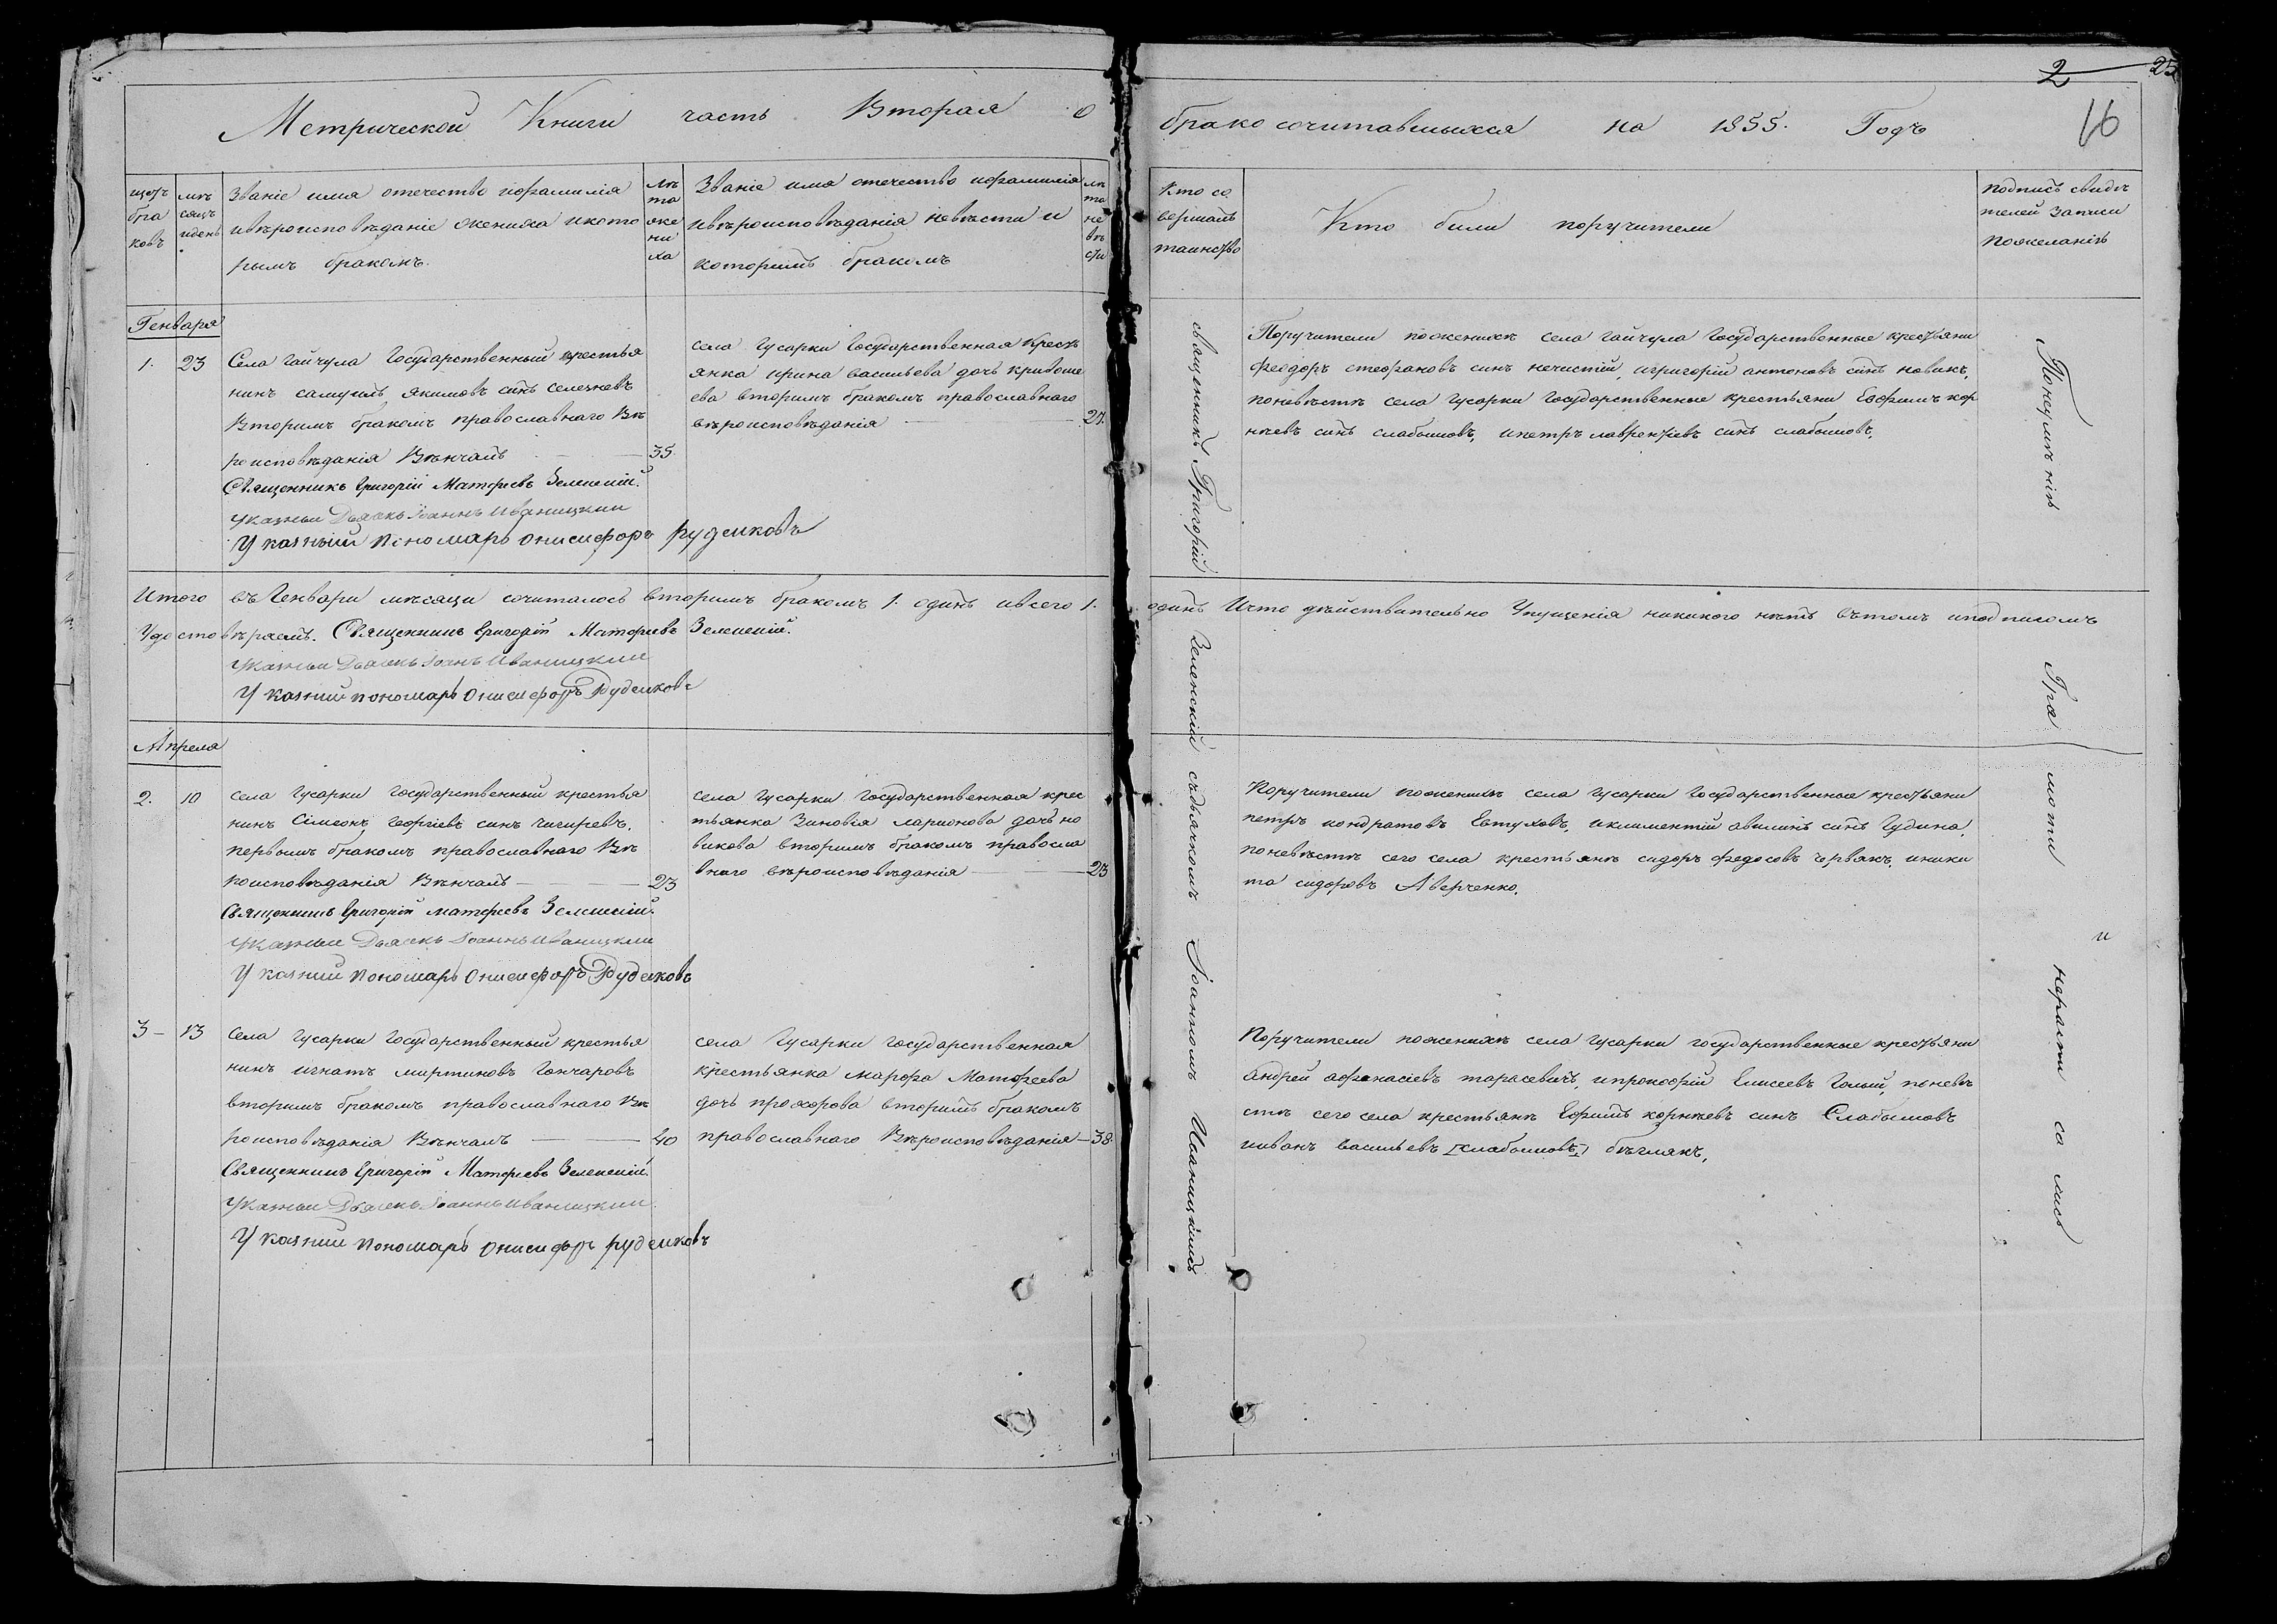 2 25
16
Метрической Книги часть Вторая о
брако сочитавшихся на 1855. Годъ
щетъ бра ковъ
мѣ сяцъ идень
Званіе имя отечество ифамилія
ивѣроисповѣданіе жениха икото
рымъ бракомъ.
лѣ та же ни ха
Званіе имя отечество ифамилія
ивѣроисповѣданія невѣсти и
которимъ бракомъ
лѣ та не вѣ сти
Кто со
вершалъ
таинство
Кто били поручители
подпись свидѣ
телей записи
пожеланію
Генваря
1. 23
Села Гайчула Государственный крестья
нинъ самуилъ якимовъ синъ селезневъ
Вторимъ бракомъ православнаго Вѣ
роисповѣданія Вѣнчалъ — 35.
Священникъ Григорій Матѳеевъ Зеленскій.
Указный Дьячекъ Іоаннъ Иваницкий
Указный пономарь Онисифоръ Руденковъ
села Гусарки Государственная Кресть
янка ирина васильева дочь кривоше
ева вторимъ бракомъ православнаго
вѣроисповѣданія — 27.
священникъ Григорій Зеленскій съдьякомъ Іоанномъ Иваницкимъ
Поручители поженихѣ села Гайчула Государственные крестьяни
Феодоръ стефановъ синъ нечистій, игригорій антоновъ синъ новикъ,
поневѣстѣ села Гусарки Государственные крестьяни Евфимъ кор
нѣевъ синъ слабошовъ, ипетръ лаврентіевъ синъ слабошовъ.
Понеумѣнію Гра моти и нерости са лись
Итого въ Генвари мѣсяци сочиталось вторимъ бракомъ 1. одинъ ивсего 1. одинъ Ичто дѣйствительно Упущенія никикого нѣтъ вътомъ иподписомъ
Удостовѣряемъ. Священникъ Григорій Матѳеевъ Зеленскій.
Указный Дьячекъ Іоанъ Иваницкий
Указний пономарь Онисифоръ Руденковъ
Апреля
2. 10
села Гусарки Государственный крестья
нинъ Сімеонъ Георгіевъ синъ Чигиревъ.
первымъ бракомъ православнаго Вѣ
роисповѣданія Вѣнчалъ — 23
Священникъ Григорій Матѳеевъ Зеленскій.
Указный Дьячекъ Іоаннъ Иваницкий
Указний пономарь Онисифоръ Руденковъ
села Гусарки Государственная крес
тьянка Зиновія ларионова дочь но
викова вторимъ бракомъ правосла
внаго вѣроисповѣданія — 23
Поручители поженихѣ села Гусарки Государственные крестьяни
петръ кондратовъ Евтуховъ, иклиментій авилинъ синъ Гудина,
поневѣстѣ сего села крестьянъ сидоръ федосовъ Червякъ, иники
та сидоровъ Аверченко.
3 — 13
Села Гусарки Государственный крестья
нинъ игнатъ миртиновъ Гончаровъ
вторимъ бракомъ православнаго Вѣ
роисповѣданія Вѣнчалъ — 40
Священникъ Григорій Матѳеевъ Зеленскій.
Указный Дьячекъ Іоаннъ Иваницкий
Указний пономарь Онисифоръ Руденковъ
села Гусарки Государственная
крестьянка марфа Матфеева
дочь прохорова вторимъ бракомъ
православнаго Вѣроисповѣданія — 38
Поручители поженихѣ села Гусарки государственные крестьяни
Андрей афанасіевъ тарасевичъ, ипрокофій Елисеевъ Голый, поневѣ
стѣ сего села крестьянъ Ефимъ корнѣевъ синъ Слабышовъ
ииванъ васильевъ [слабошовъ] бѣглякъ,